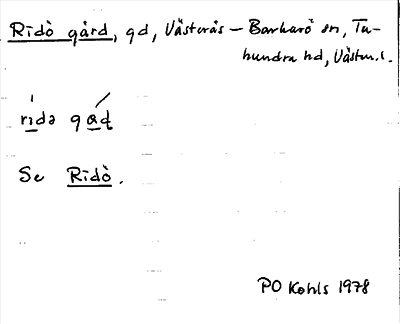 Ridö gård, gd, Västerås – Barkarö sn, Tu-
hundra hd, Västm.l.
ridə gaɖ
Se Ridö.
PO Kohls 1978